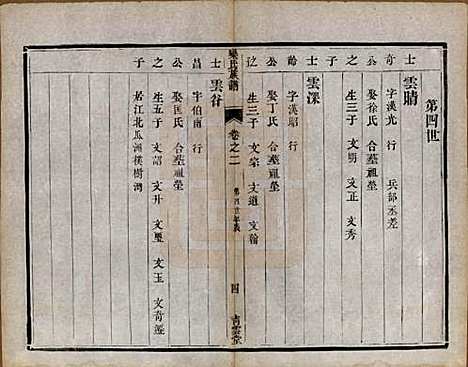 第四世
士奇公之子
雲晴
字漢光 行 兵部丞差
娶徐氏 合墓祖塋
生三子 文明 文正 文秀
士齡公之子
雲深
字漢昭 行
娶丁氏 合墓祖塋
生三子 文宗 文道 文翰
氏族譜
卷之二
第四世
四
青雲堂
士昌公之子
雲谷
字伯南 行
娶匡氏 合墓祖塋
生五子 文詔 文升 文璽 文玉 文奇遷
於江北瓜洲樸樹灣